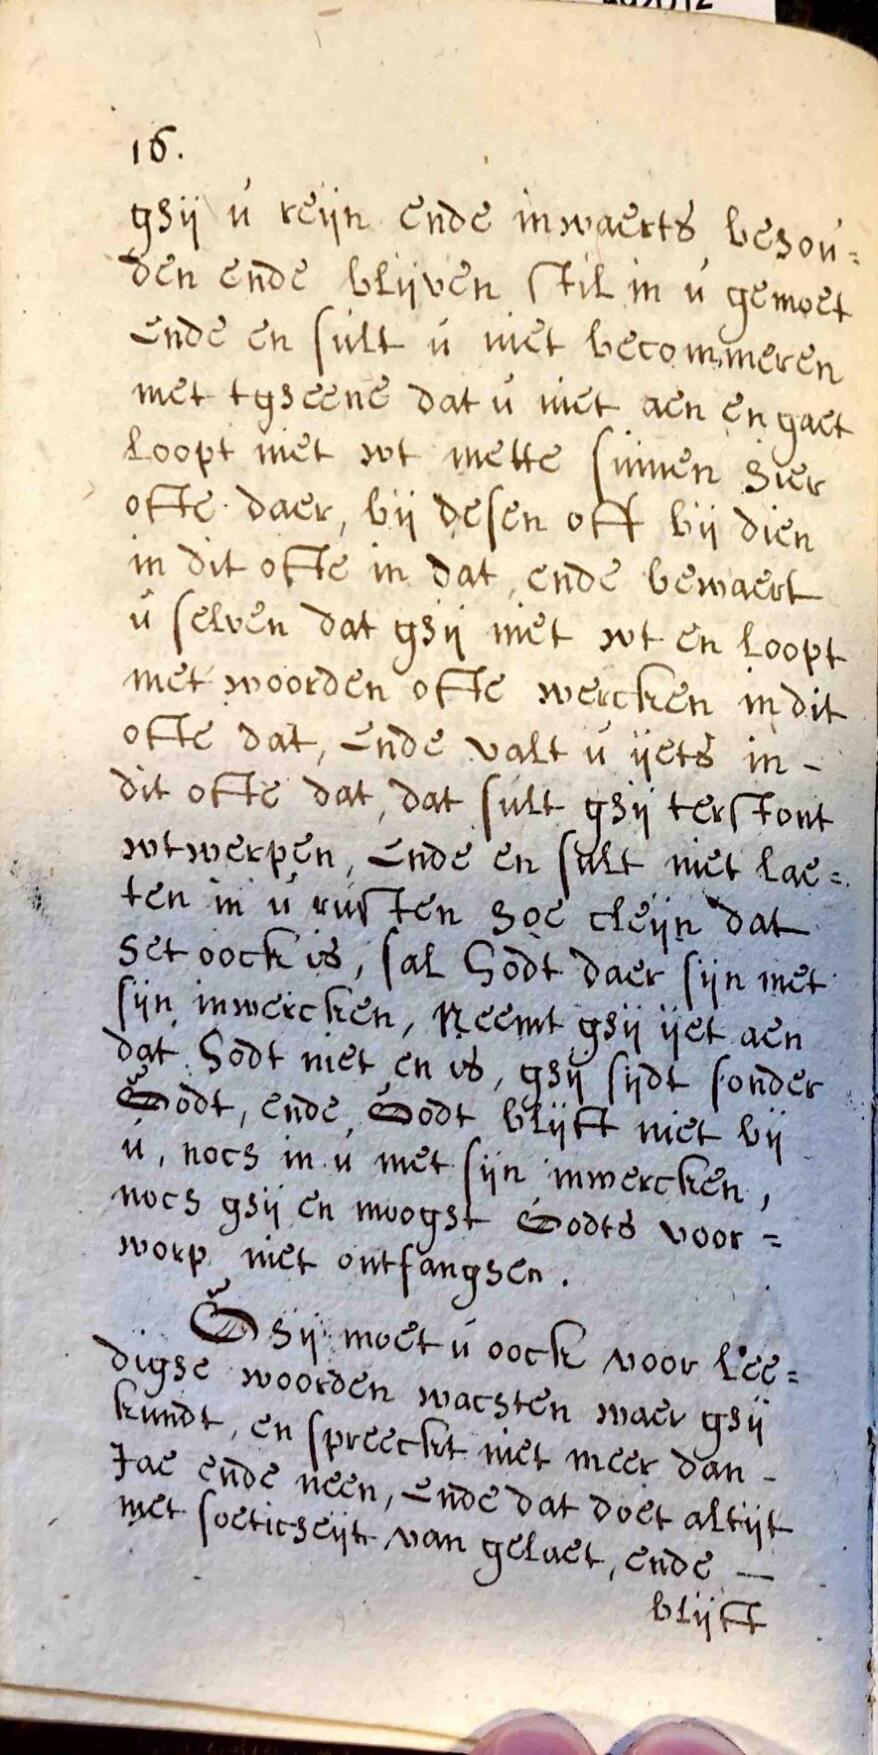 16.
ghij ú reijn ende inwaerts behoú=
den ende blijven stil in ú gemoet
Ende en súlt ú niet becommeren
met tgheene dat ú niet aen en gaet
Loopt niet wt mette sinnen hier
ofte daer, bij desen off bij dien
in dit ofte in dat, ende bewaert
ú selven dat ghij niet wt en loopt
met woorden ofte wercken in dit
ofte dat, Ende valt ú ijets in -
dit ofte dat, dat súlt ghij terstont
wtwerpen, Ende en sult niet lae=
ten in ú rusten hoe cleijn dat
het oock is, sal Godt daer sijn met
sijn inwercken, Neemt ghij ijet aen
dat Godt niet en is, ghij sijdt sonder
Godt, ende Godt blijft niet bij
ú, noch in ú met sijn inwercken,
noch ghij en moogst Godts voor=
worp niet ontfanghen.
Ghij moet ú oock voor lee=
dighe woorden wachten waer ghij
kundt, en spreeckt niet meer dan -
Jae ende neen, Ende dat doet altijt
met soeticheijt van gelaet, ende —
blijft